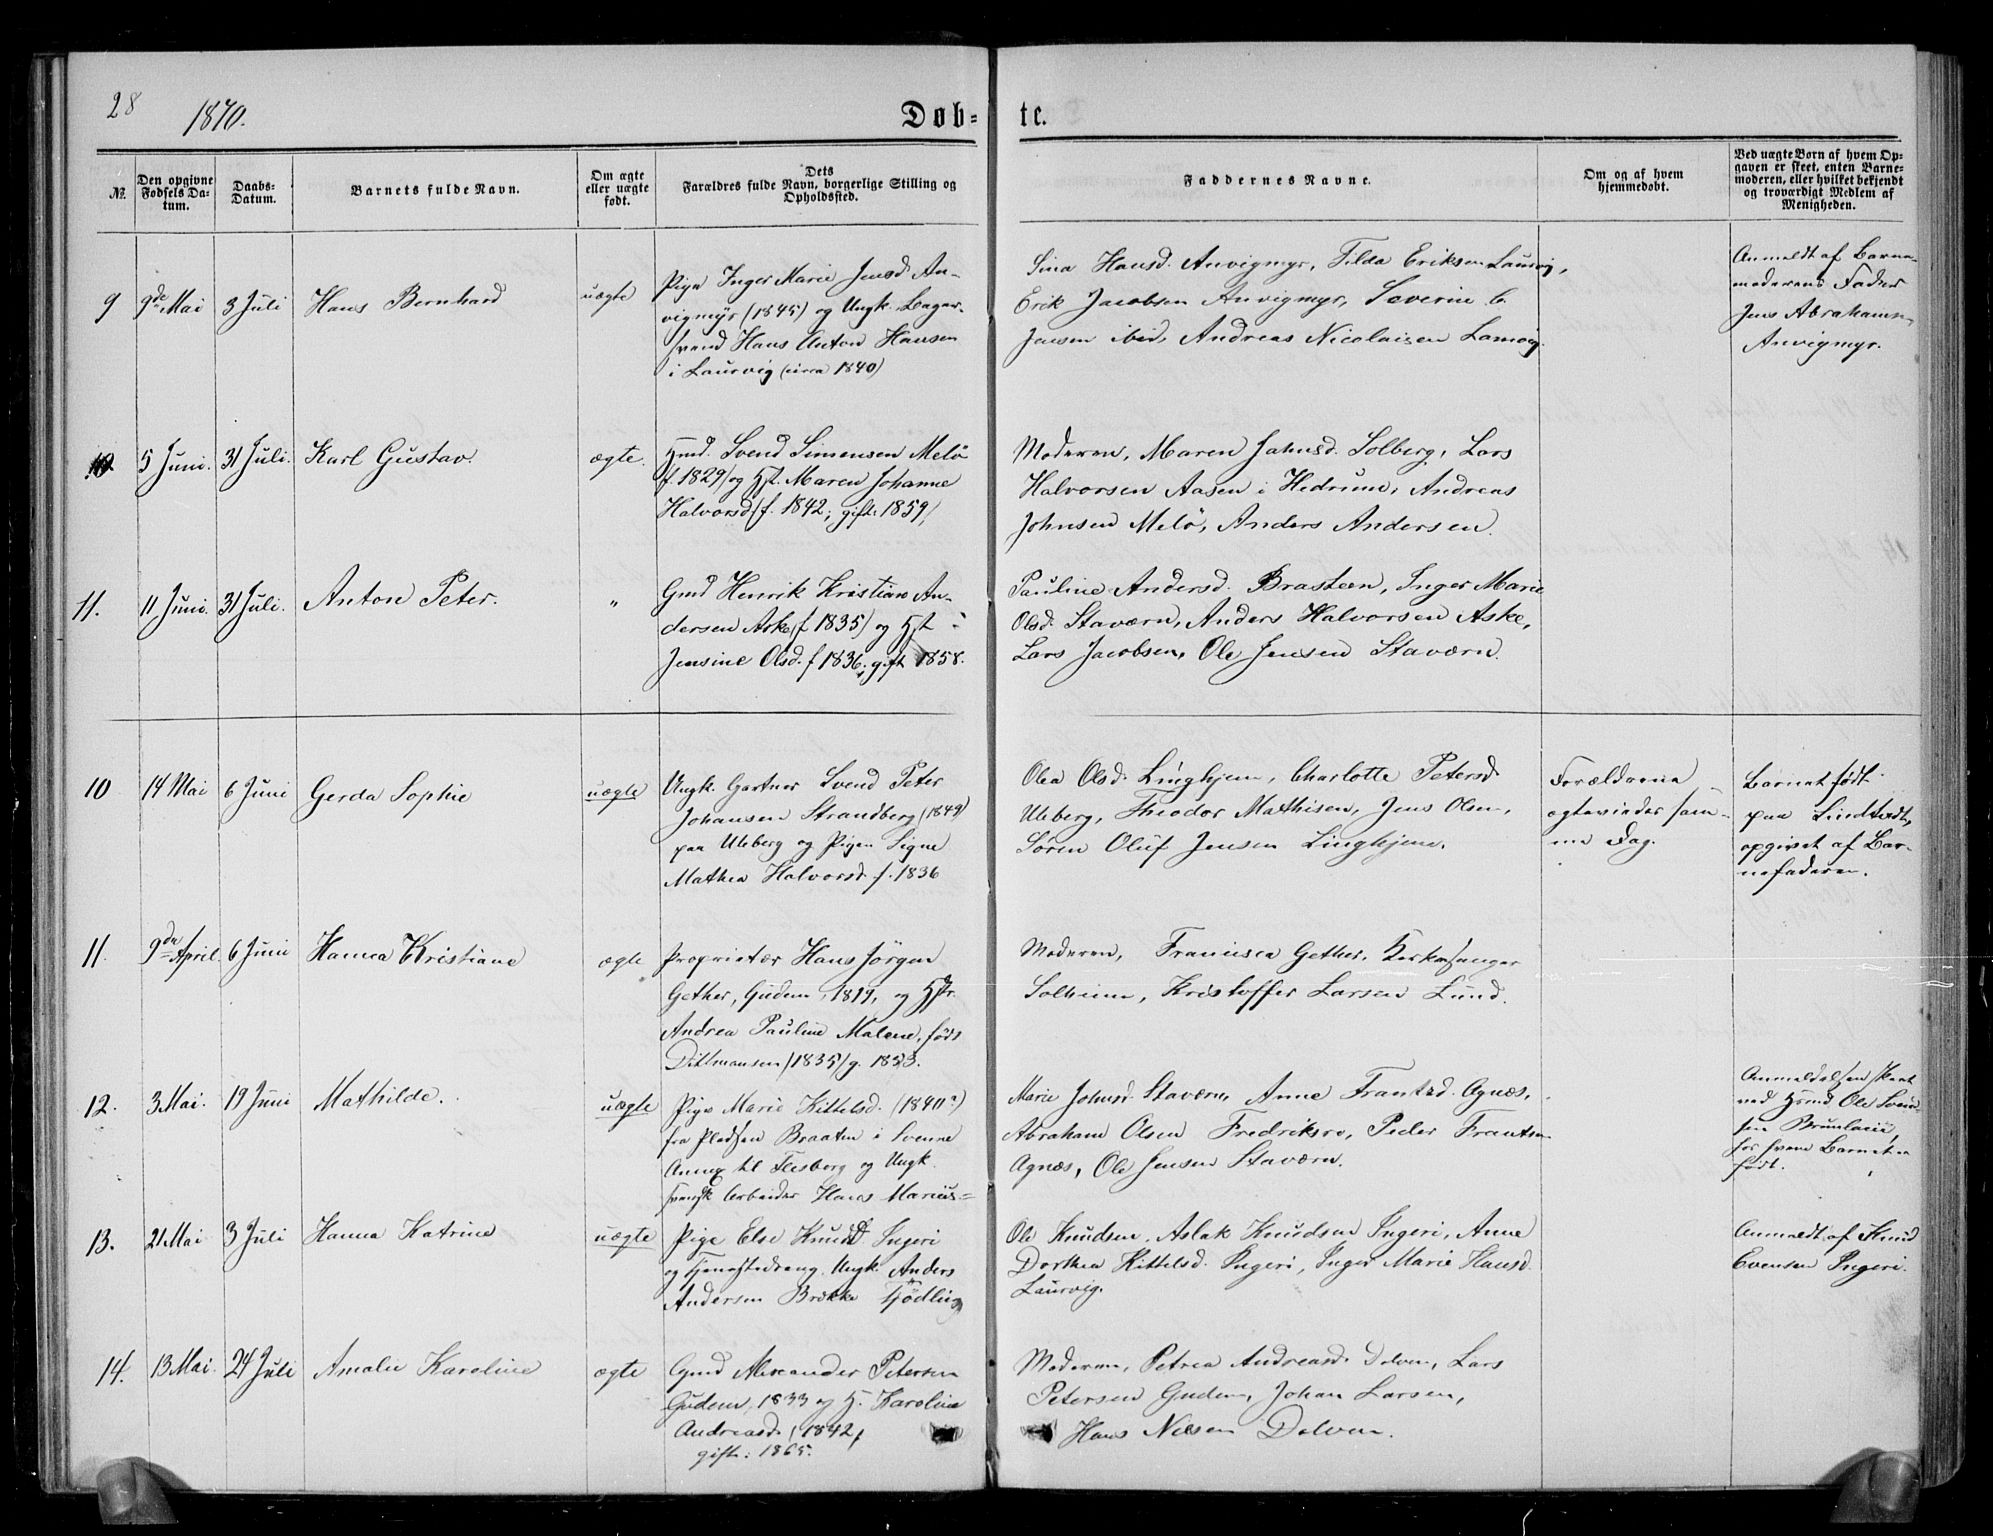 28
1870.
Døb-
te.
No.
Den opgivne Fødsels Da-
tum.
Daabs-
Datum.
Barnets fulde Navn.
Om ægte
eller uægte
født.
Dets
Farældres fulde Navn, borgerlige Stilling og
Opholdssted.
Faddernes Navne.
Om og af hvem
hjemmedøbt.
Ved uægte Børn af hvem Op-
gaven er skeet, enten Barne-
moderen, eller hvilket bekjendt
og troværdigt Medlem af
Menigheden.
9
9de Mai
3 Juli
Hans Bernhard
uægte
Pige Inger Marie Jensd. An-
vigmyr (1845) og Ungk. Bager-
svend Hans Anton Hansen
i Laurvig (circa 1840)
Sina Hansd. Anvigmyr, Tilda Eriksen Laurvig,
Erik Jacobsen Anvigmyr, Severine C.
Jensen ibid, Andreas Nicolaisen Laurvig.
Anmeldt af Barne-
moderens Fader
Jens Abrahams.
Anvigmyr.
10
5 Juni.
31 Juli.
Karl Gustav.
ægte.
Hmd. Svend Simensen Melø
f. 1829) og Hst. Maren Johanne
Halvorsd (f. 1842; gift: 1859)
Moderen, Maren Jahnsd. Solberg, Lars
Halvorsen Aasen i Hedrum, Andreas
Johnsen Melø, Anders Andersen.
11.
11 Juni.
31 Juli.
Anton Peter.
"
Gmd Henrik Kristian An-
dersen Aske (f 1835) og Hst.
Jensine Olsd. f 1836, gift 1858.
Pauline Andersd. Brasteen, Inger Marie
Olsd. Staværn, Anders Halvorsen Aske,
Lars Jacobsen, Ole Jensen Staværn.
10
14 Mai
6 Juni
Gerda Sophie
uægte
Ungk. Gartner Svend Peter
Johansen Strandberg (1849)
paa Uleberg og Pigen Signe
Mathea Halvorsd. f. 1836
Olea Olsd. Linghjem, Charlotte Petersd.
Uleberg, Theodor Mathisen, Jens Olsen,
Søren Oluf Jensen Linghjem.
Forældrene
ægtevieder sam-
me Dag.
Barnet født
paa Lindtvedt,
opgivet af Bar-
nefaderen.
11.
9de April.
6 Juni
Hanna Kristiane
ægte
Proprietær Hans Jörgen
Gether, Gudem, 1819, og Hstr.
Andrea Pauline Malene, født
Dittmansen (1835) g. 1853.
Moderen, Francisca Gether, Kirkesanger
Solheim, Kristoffer Larsen Lund.
12.
3 Mai.
19 Juni
Mathilde.
uægte
Pige Marie Kittelsd. (1840?)
fra Pladsen Braaten i Svenne
Annex til Flesberg og Ungk.
svensk Arbeider Hans Marius.=
Marie Johnsd. Staværn, Anne Frantsd. Agnæs,
Abraham Olsen Fredriksrø, Peder Frantsen
Agnæs, Ole Jensen Staværn.
Anmeldelsen skeet
ved Hsmd. Ole Svend-
sen Brunlanæs,
hos hvem Barnet er
født.
13.
21 Mai
3 Juli
Hanna Katrine
uægte
Pige Else Knudsd. Ingeri
og Tjenestedreng, Ungk. Anders
Andersen Brække Tjödling
Ole Knudsen, Aslak Knudsen Ingeri, Anne
Dorthea Kittelsd. Ingeri, Inger Marie Hansd.
Laurvig.
Anmeldt af Knud
Evensen Ingeri.
14.
13 Mai.
24 Juli
Amalie Karoline
ægte
Gmd Alexander Petersen
Gudem, 1833 og H. Karoline
Andreasd. (1842,
gift: 1865.
Moderen, Petrea Andreasd. Dolven, Lars
Petersen Gudem, Johan Larsen,
Hans Nilsen Dolven.